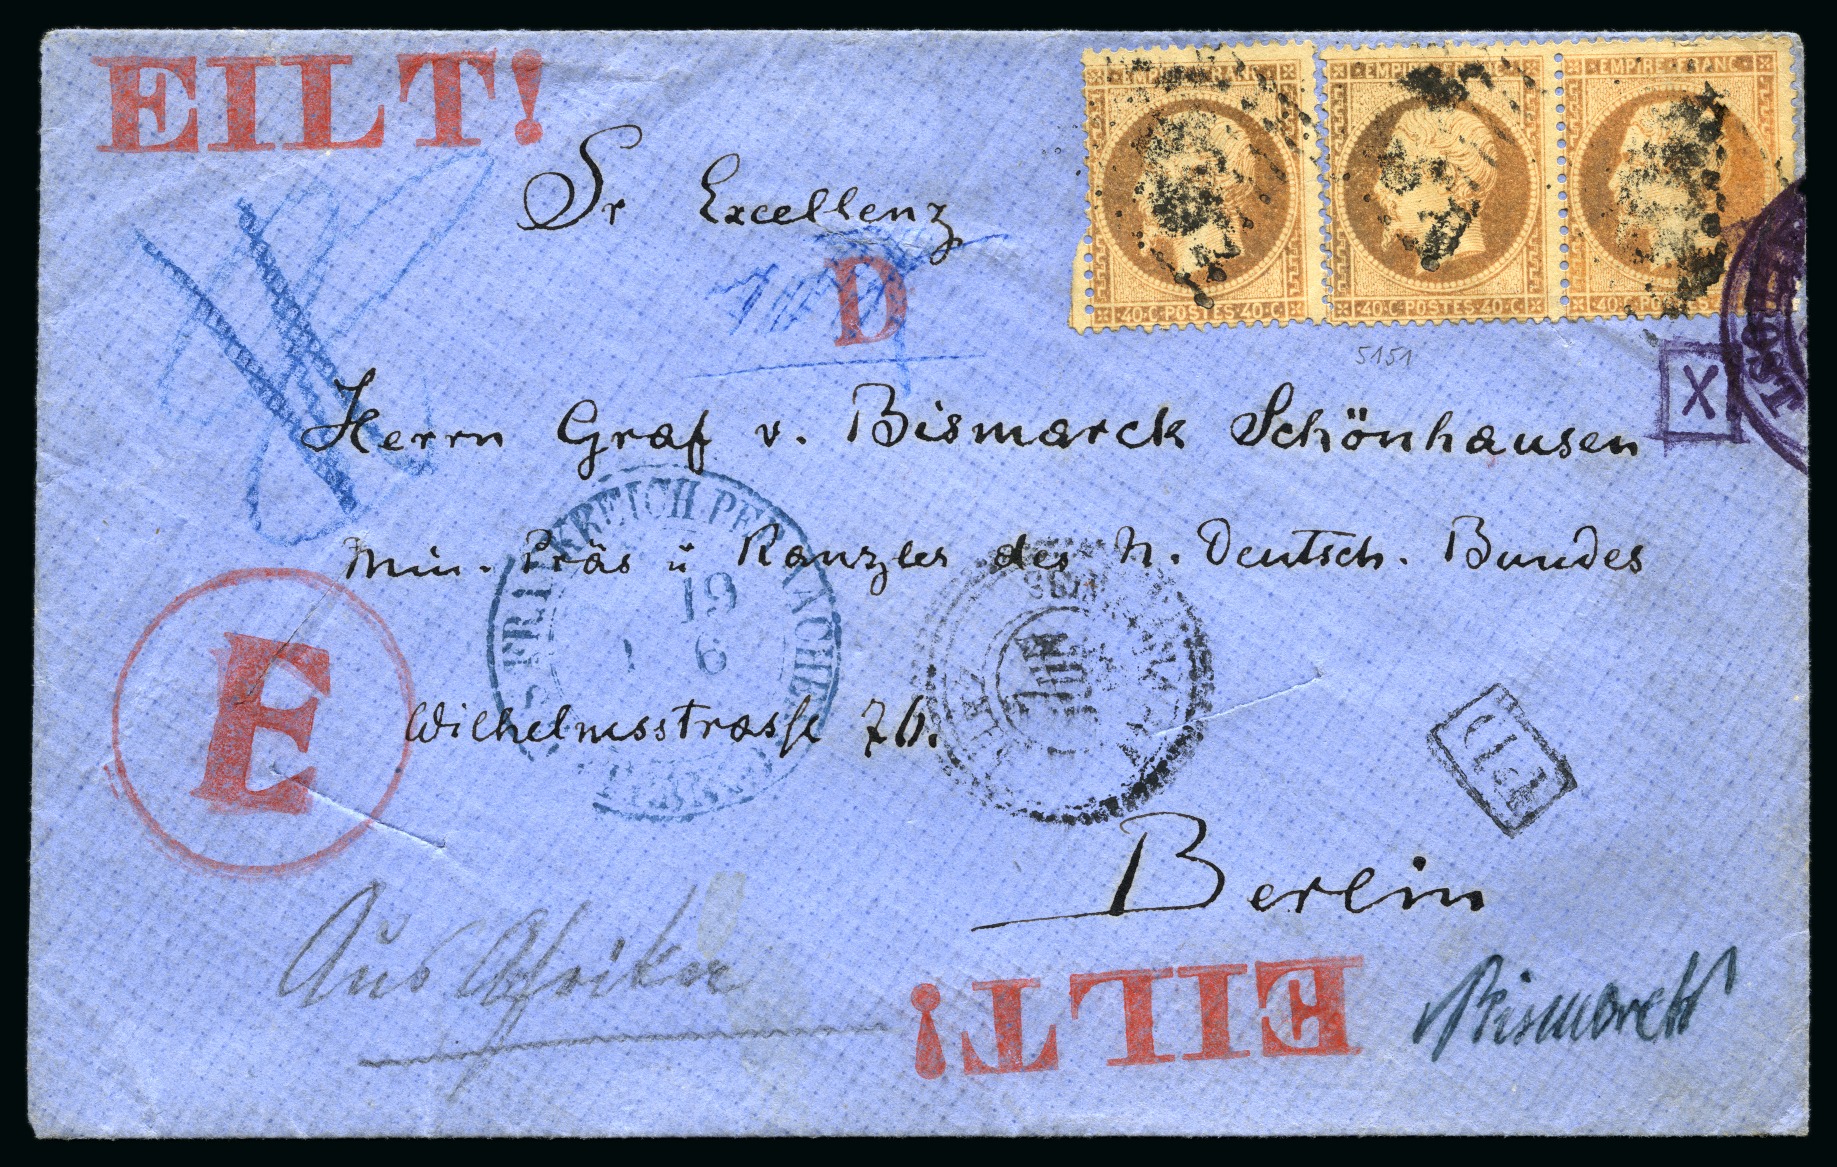 EILT!
EMPIRE FRANC
EMPIRE FRANC
EMPIRE FRANC
40·C·POSTES·40·C·
40·C·POSTES·40·C·
40·C·POSTES·40·C·
5151
X
Sr Excellenz
D
Herrn Graf v. Bismarck Schönhausen
Min. Präs u Kanzler des N. Deutsch. Bundes
19
6
Wilhelmsstrasse 76.
E
PD
Berlin
Aus Afrika
EILT!
Bismarck